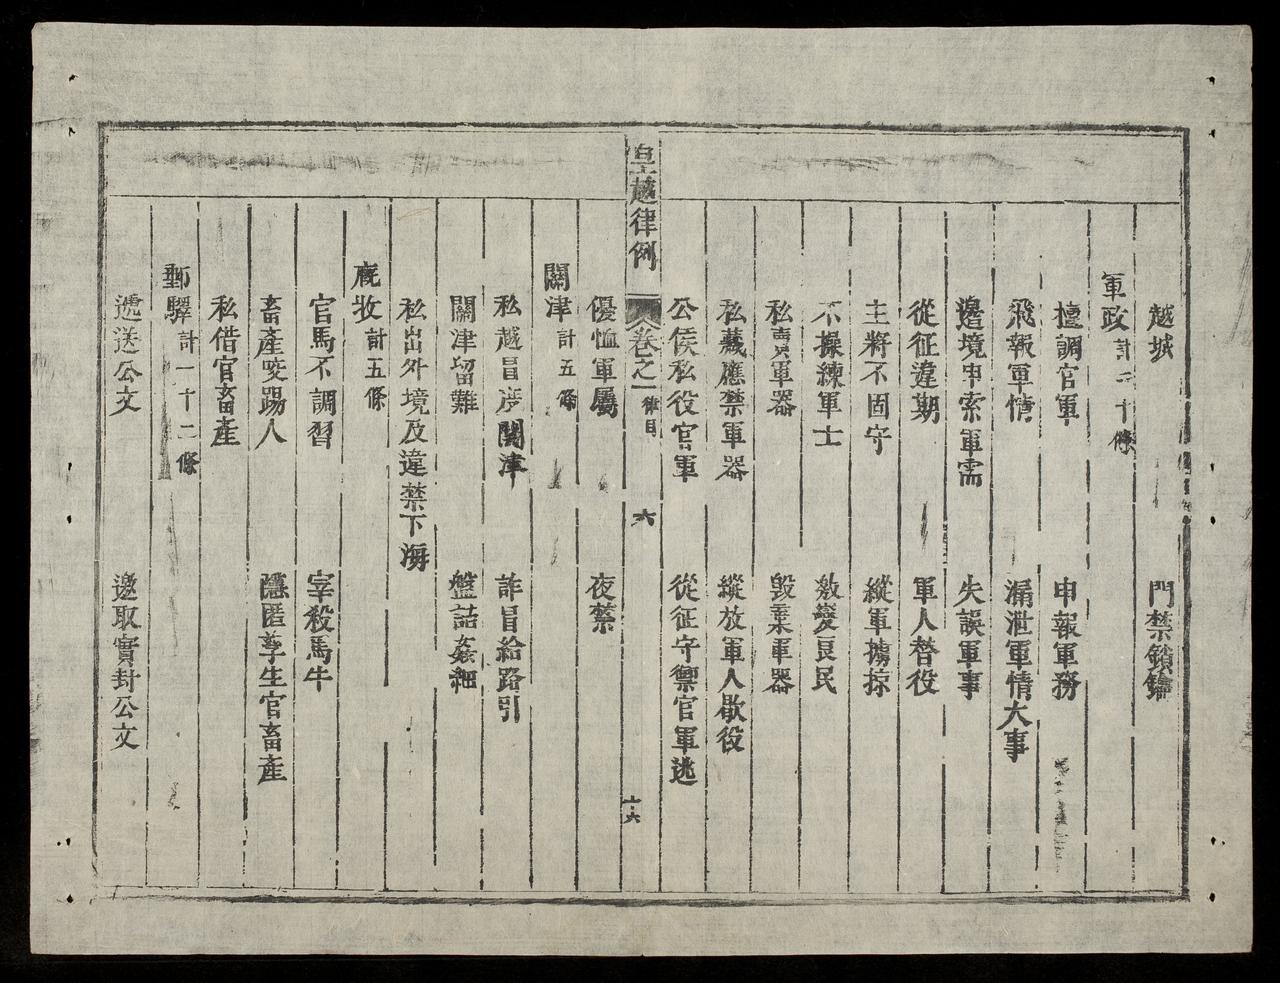 越城 門禁鎖鑰
軍政計二十條
擅調官軍 申報軍務
飛報軍情 漏泄軍情大事
邊境申索軍需 失誤軍事
從征違期 軍人替役
主將不固守 縱軍擄掠
不操練軍士 激變良民
私賣軍器 毀棄軍器
私藏應禁軍器 縱放軍人歇役
公侯私役官軍 從征守禦官軍逃
皇越律例 卷之一 律目 六
上六
優恤軍屬 夜禁
關津計五條
私越冒度關津 詐冒給路引
關津留難 盤詰姦細
私出外境及違禁下海
廐牧計五條
官馬不調習 宰殺馬牛
畜產咬踢人 隱匿孳生官畜產
私借官畜產
郵驛計一十二條
遞送公文 邀取實封公文